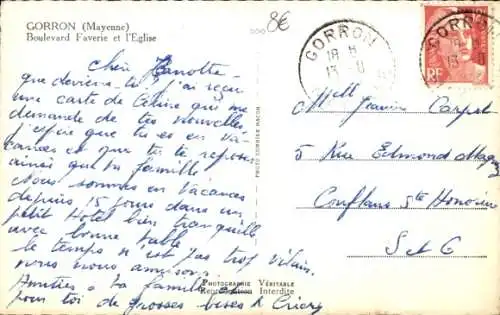 GORRON (Mayenne)
Boulevard Faverie et l'Eglise
8€
GORRON
18 H
13 11
GORRON
18 H
13 11
RF
Chère Janotte
que deviens-tu ? j'ai reçu
une carte de Céline qui me
demande de tes nouvelles
j'espère que tu es en va-
cances et que tu te reposes
ainsi que ta famille
Nous sommes en vacances
depuis 15 jours dans un
petit Hôtel bien tranquille
avec bonne table
le temps n'est pas trop vilain.
nous nous amusons.
Amitiés à ta famille et
pour toi de grosses bises
Melle Jeanine Carpet
5 Rue Edmond Magnez
Conflans Ste Honorine
S et O
PHOTO COMBIER MACON
PHOTOGRAPHIE VÉRITABLE
Reproduction Interdite